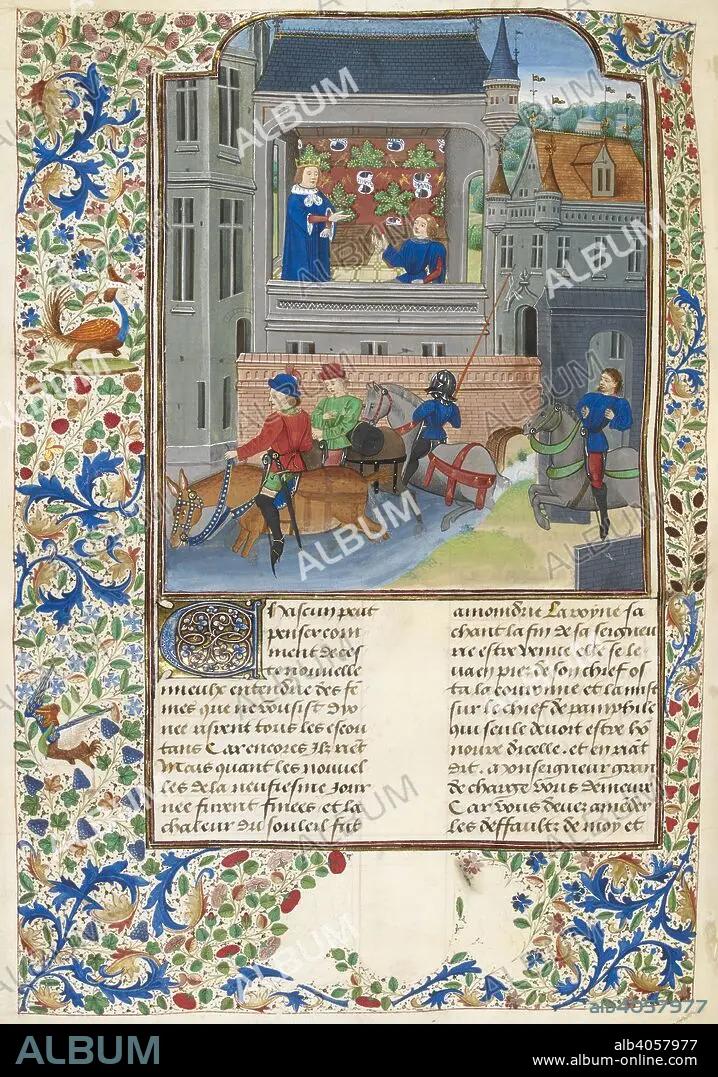 Chascun peut
penser com
ment de ces
te nouvelle
mieulx entendre des fe
mes que ne voulsist Dyo
nee rirent tous les escou
tans Car encores ilz riet
Mais quant les nouvel
les de la neufiesme Jour
nee furent finees et la
chaleur du souleil fus
amoindrie La royne sa
chant la fin de sa seigneu
rie estre venue elle se le
va en piez de son chief os
ta la couronne et la mist
sur le chief de pamphile
qui seule devoit estre ho
nouré dicelle. et en riat
dit. Monseigneur gran
de charge vous demeure
Car vous devez amender
les deffaultz de moy et
ALBUM
alb4057977
ALBUM
alb4057977
www.album-online.com